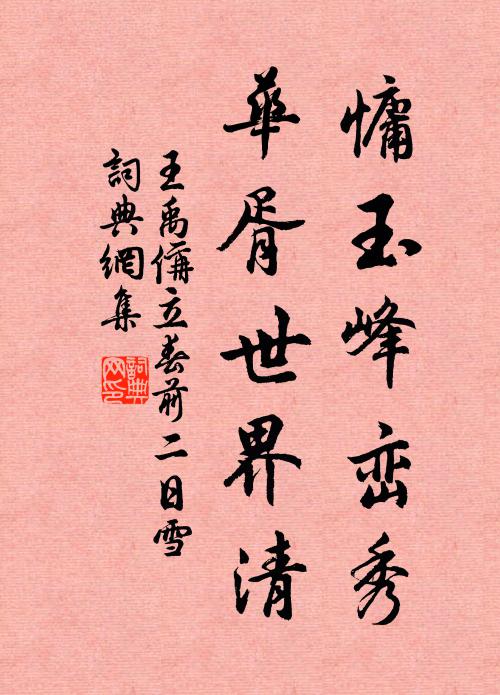 慵玉峰峦秀
華胥世界清
王禹偁立春前二日雪
詞典網集
詞典網印